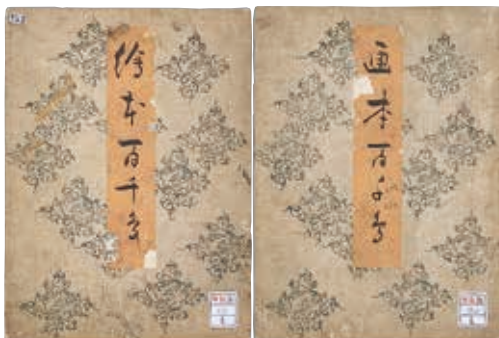 繪本百千鳥
画本百千鳥